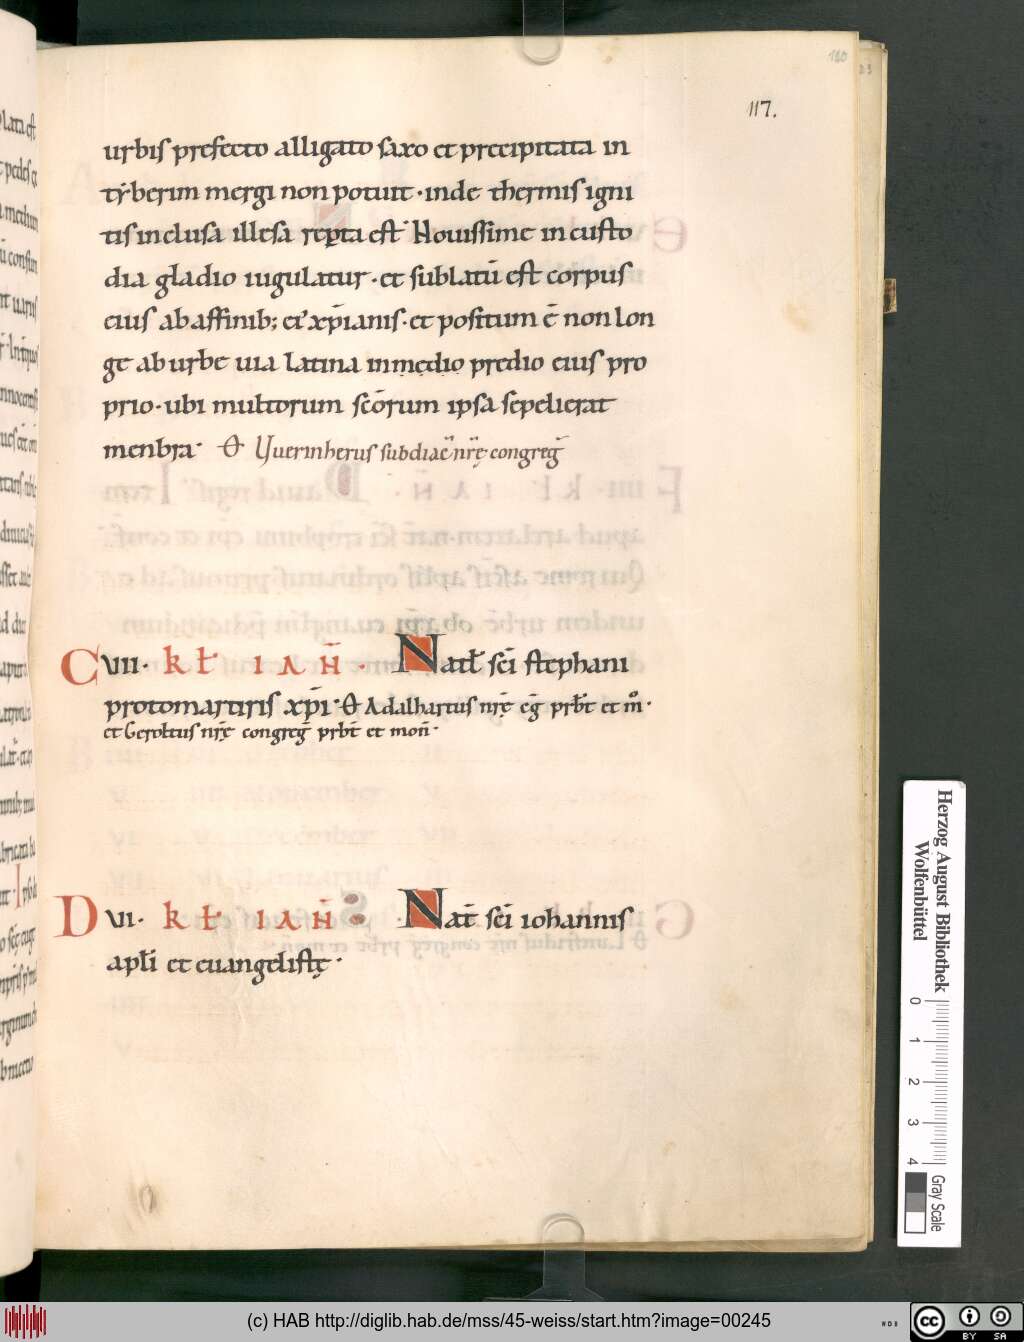 117.
urbis prefecto alligato saxo et precipitata in
tẏberim mergi non potuit · inde thermis igni
tis inclusa illesa reꝑta est · Nouissime in custo
dia gladio iugulatur · et sublatū est corpus
eius ab affinib; et xp̄ianis · et positum ē non lon
ge ab urbe uia latina in medio predio eius pro
prio · ubi multorum scōrum ipsa sepelierat
menbra · Ꝋ Yuerinherus subdiac̄ nr̄ę congreḡ
C VII · kƚ IAN̄ · Natƚ sc̄i stephani
protomartiris xp̄i · Ꝋ Adalhartus nr̄ę c̄g prb̄t et m̊ ·
et Geroltus nr̄ę congreḡ prb̄t et mon̄ ·
D VI · kƚ IAN̄ · Nat̄ sc̄i iohannis
apƚi et euangelistę ·
Herzog August Bibliothek
Wolfenbüttel
0 1 2 3 4
Gray Scale
(c) HAB http://diglib.hab.de/mss/45-weiss/start.htm?image=00245
cc BY SA